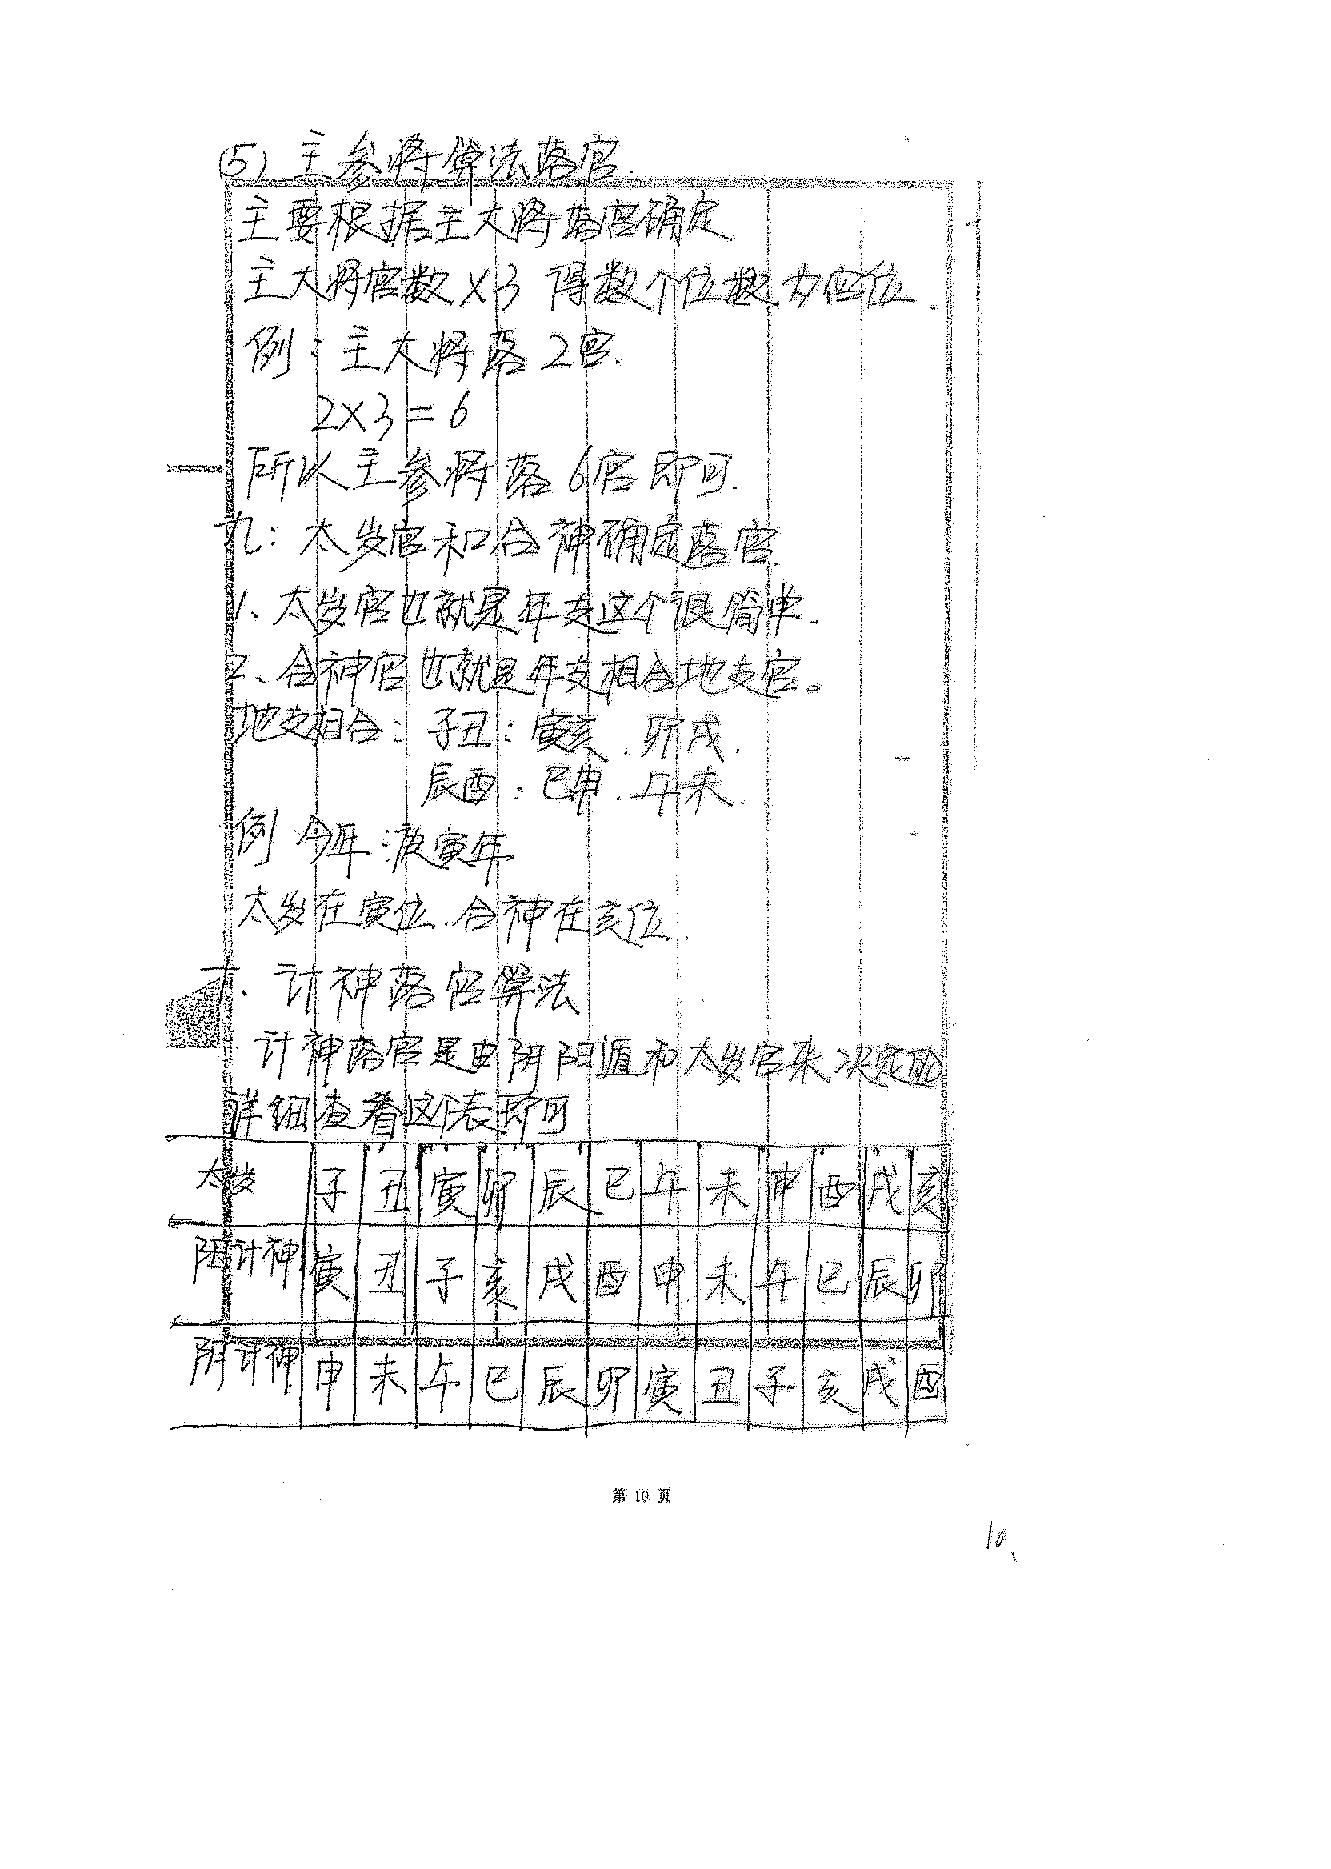 (5) 主参将算法落宫.
主要根据主大将落宫确定
主大将宫数×3 得数个位数为宫位.
例：主大将落2宫.
2×3=6
所以主参将落6宫即可.
九：太岁宫和合神确定落宫.
1、太岁宫也就是年支这个很简单.
2、合神宫也就是年支相合地支宫。
地支相合：子丑：寅亥.卯戌.
辰酉：巳申.午未.
例 今年：庚寅年
太岁在寅位.合神在亥位.
十、计神落宫算法
计神落宫是由阴阳遁和太岁宫来决定
详细查看这个表即可
太岁 子 丑 寅 卯 辰 巳 午 未 申 酉 戌 亥
阳计神 寅 丑 子 亥 戌 酉 申 未 午 巳 辰 卯
阴计神 申 未 午 巳 辰 卯 寅 丑 子 亥 戌 酉
第 10 页
10、